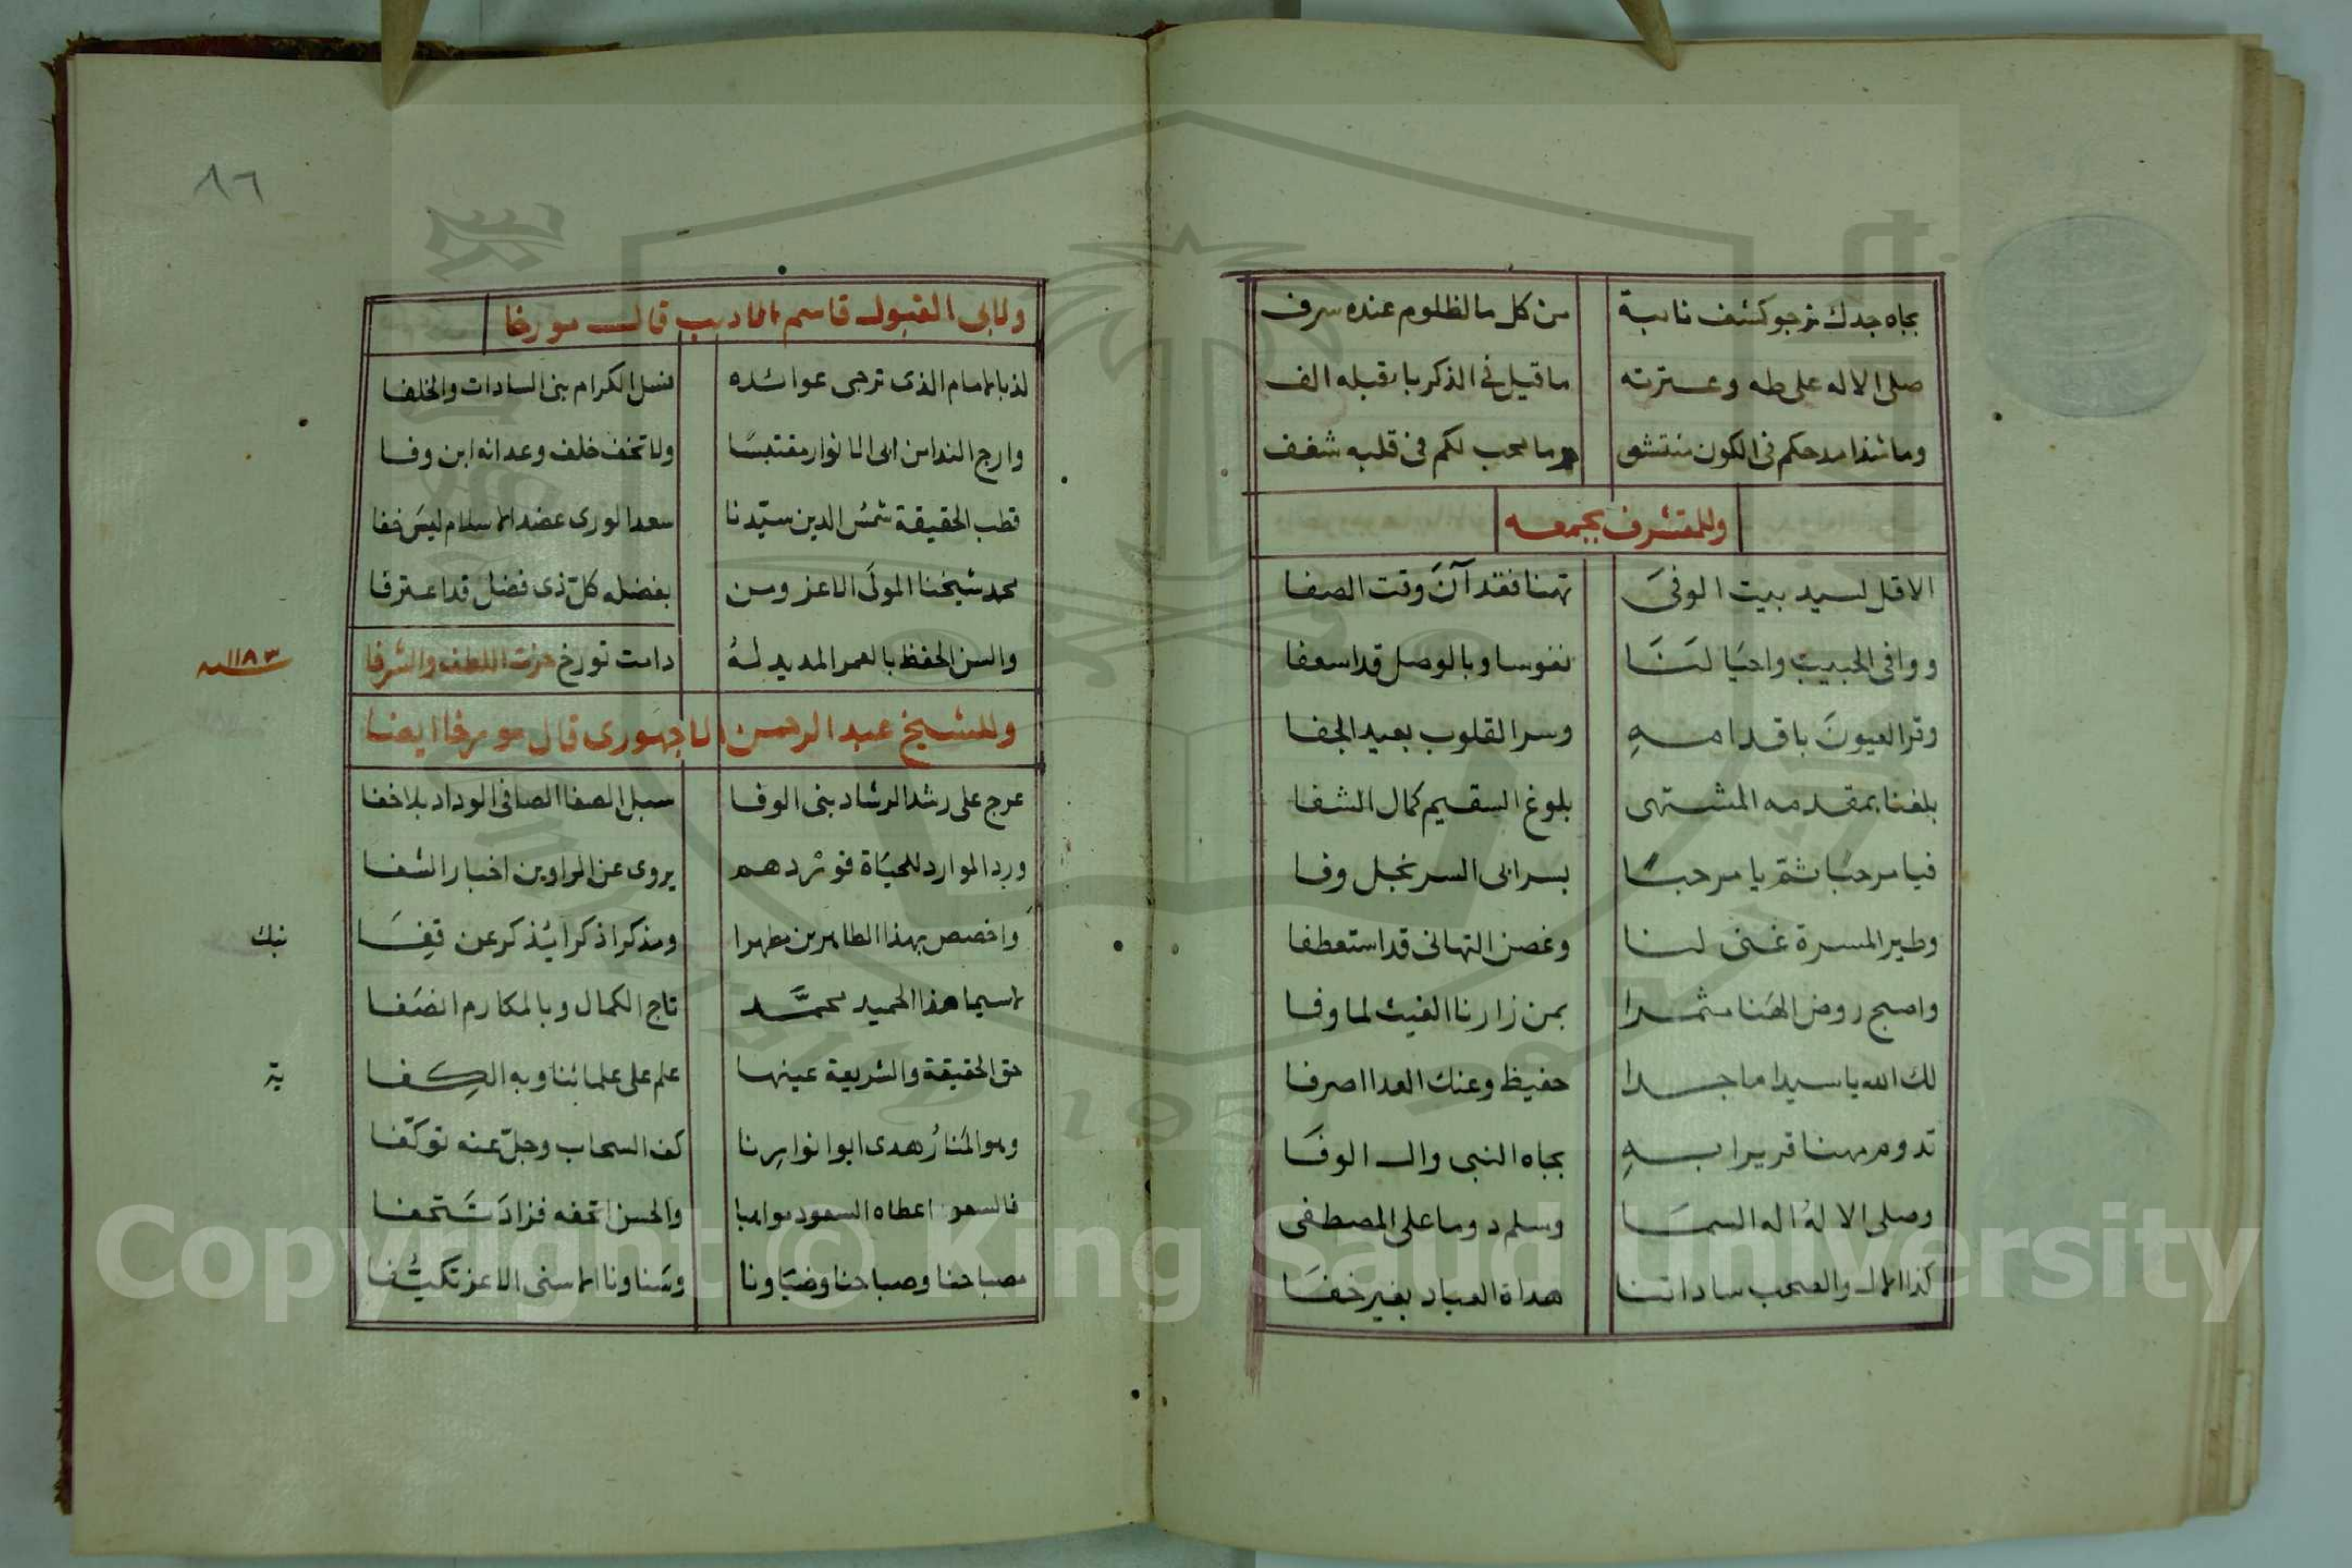 بجاه جدك نرجو كشف نائبة من كل ما لظلوم عنده سرف
صلى الاله على طه وعترته ما قيل في الذكر با بقبله الف
وما شذا مدحكم في الكون منتشق وما لمحب لكم في قلبه شغف
وللمتشرف بجمعه
الا قل لسيد بيت الوفىَ تهنا فقد آنَ وقت الصفا
ووافى الحبيب واحيَا لنَا نفوسا وبالوصل قد اسعفا
وقر العيونَ باقدامهِ وسر القلوب بعيد الجفا
بلغنا بمقدمه المشتهى بلوغ السقيم كمال الشفا
فيا مرحبًا ثم يا مرحبًا بسر ابى السر نجل وفا
وطير المسرة غنى لنا وغصن التهانى قد استعطفا
واصبح روض الهنا مثمرا بمن زارنا الغيث لما وفا
لك الله يا سيدا ماجدا حفيظ وعنك العدا اصرفا
تدوم مهنا قريرا بهِ بجاه النبى وال الوفَا
وصلى الالهُ اله السمَا وسلم دوما على المصطفى
كذا الال والصحب ساداتنا هداة العباد بغير خفَا
٨٦
ولابى القبول قاسم الاديب قال مورخا
لذ بالامام الذى ترجى عوائده نسل الكرام بنى السادات والخلفا
وارج الندا من ابى الانوار مقتبسًا ولا تخف خلف وعد انه ابن وفا
قطب الحقيقة شمس الدين سيّدنا سعد الورى عضد الاسلام ليسَ خفا
محمد شيخنا المولَى الاعز ومن بفضله كلّ ذى فضل قد اعترفا
والسن الحفظ بالعمر المديد لهُ دامت تورخ حزت اللطف والشرفا
١١٨٣ سنة
وللشيخ عبد الرحمن الاجهورى قال مورخا ايضا
عرج على رشد الرشاد بنى الوفا سبل الصفا الصافى الوداد بلا خفا
ورد الموارد للحيَاة فوِرْدهم يروى عن الراوين اخبار الشفا
واخصص بهذا الطاهرين مطهرا ومذكرا ذكرا يُذكر عن قِفَا نبك
لاسيما هذا الحميد محمَّد تاج الكمال وبالمكارم انصَفا
حق الحقيقة والشريعة عينها علم على علمائنا وبه الكِفا ية
وهو المنارُ هدى ابو انوارِنا كف السحاب وجلّ عنه توكّفا
فالسعد اعطاه السعود مواهبا والحسن اتحفه فزادَ تَتحفا
مصباحنا وصباحنا وضيَاونا وسَناونا الاسنى الاعز تكشّفا
Copyright © King Saud University
1957